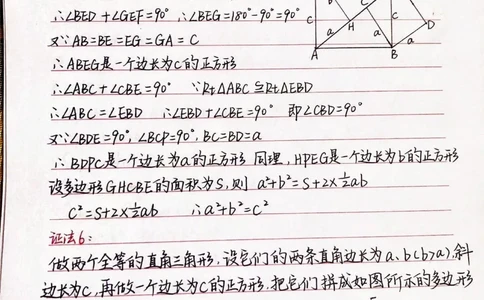 ∴∠BED+∠GEF=90° ∴∠BEG=180°-90°=90°
又∵AB=BE=EG=GA=C
∴ABEG是一个边长为C的正方形
∴∠ABC+∠CBE=90° ∵Rt△ABC≌Rt△EBD
∴∠ABC=∠EBD ∴∠EBD+∠CBE=90° 即∠CBD=90°
又∵∠BDE=90°,∠BCP=90°,BC=BD=a
∴BDPC是一个边长为a的正方形 同理,HPEG是一个边长为b的正方形
设多边形GHCBE的面积为S,则 a²+b²=S+2×½ab
C²=S+2×½ab ∴a²+b²=c²
证法6:
做两个全等的直角三角形,设它们的两条直角边长为a、b(b>a),斜
边长为C,再做一个边长为C的正方形,把它们拼成如图所示的多边形
C
C
D
a
H
a
a
A
B